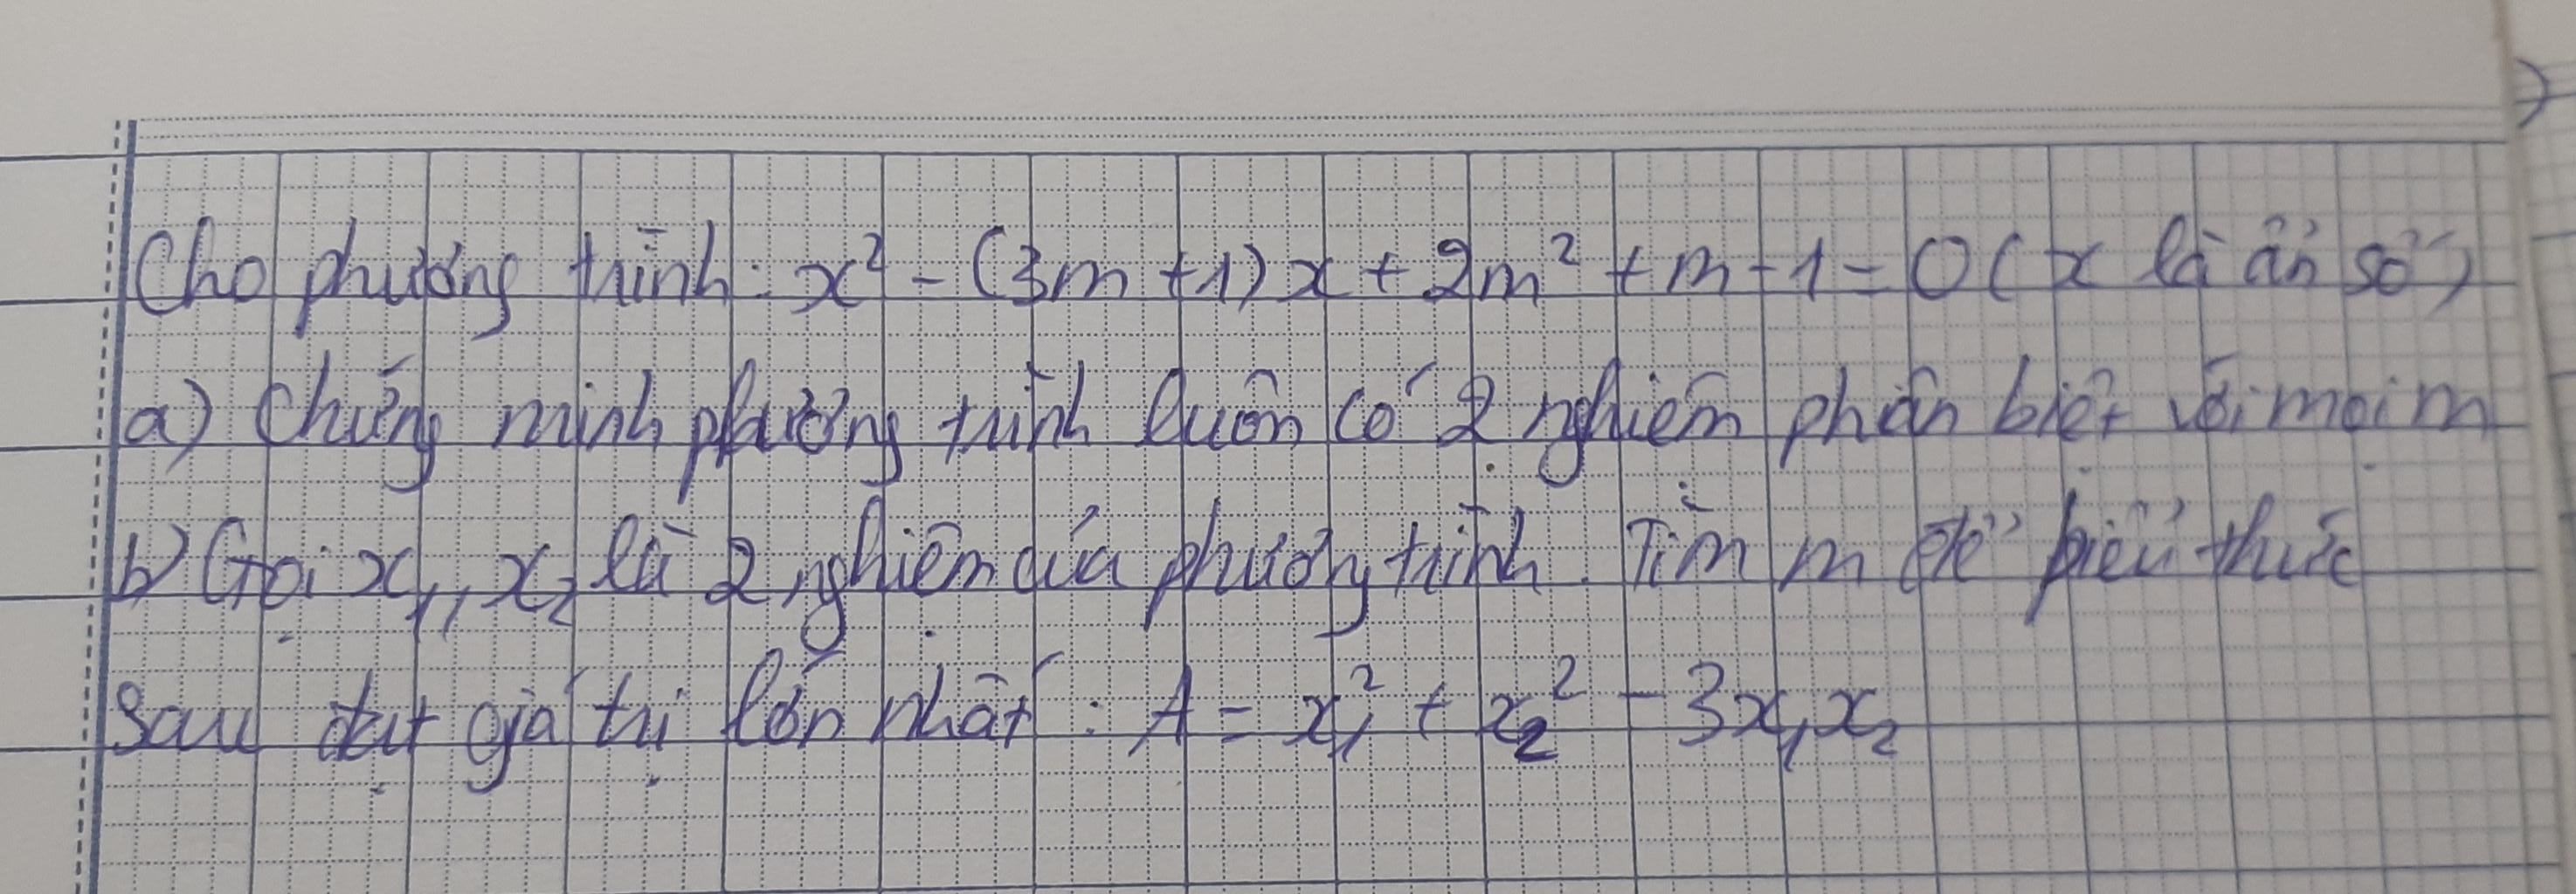 Cho phương trình: x² - (3m +1)x + 2m² + m - 1 = 0 ( x là ẩn số)
a) Chứng minh phương trình luôn có 2 nghiệm phân biệt với mọi m
b) Gọi x₁, x₂ là 2 nghiệm của phương trình. Tìm m để biểu thức
sau đạt giá trị lớn nhất : A = x₁² + x₂² - 3x₁x₂